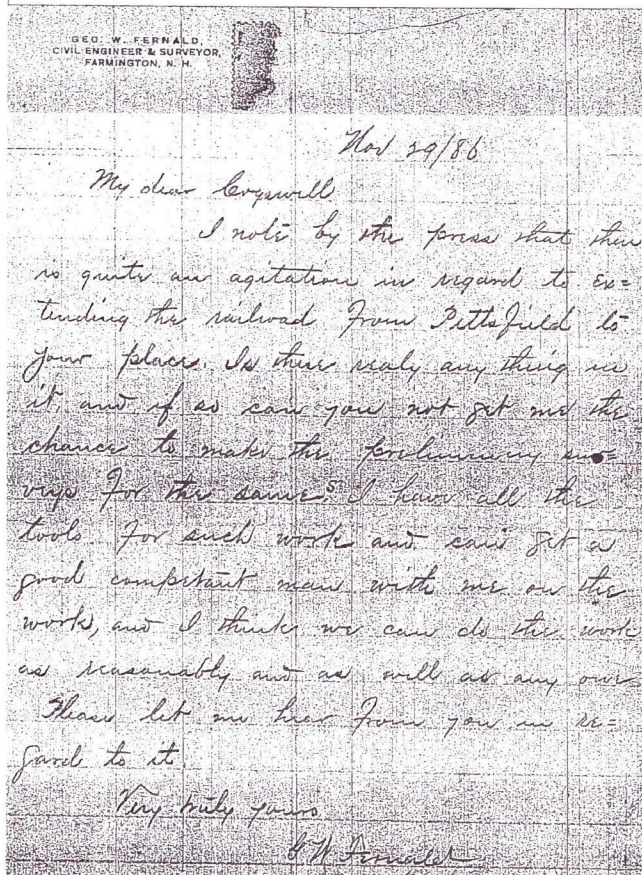 GEO. W. FERNALD,
CIVIL ENGINEER & SURVEYOR,
FARMINGTON, N. H.
Nov 29/86
My dear Cogswell
I note by the press that there
is quite an agitation in regard to ex=
tending the railroad From Pittsfield to
your place. Is there realy any thing in
it, and if so can you not get me the
chance to make the preliminary sur=
veys For the same? I have all the
tools For such work and can get a
good competant man with me on the
work, and I think we can do the work
as reasonably and as well as any one
Please let me hear From you in re=
gard to it.
Very truly yours
G W Fernald